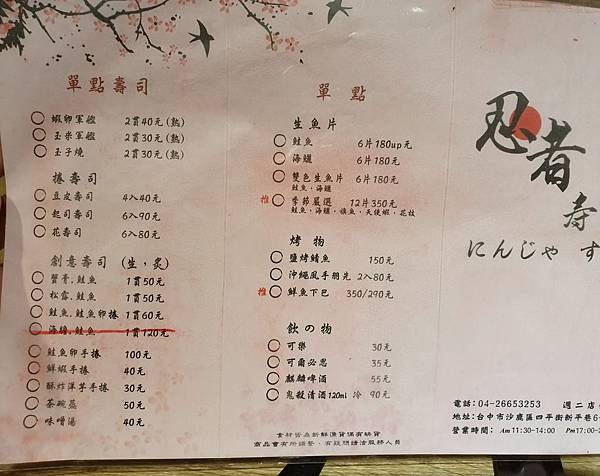 單點壽司
蝦卵軍艦 2貫40元(熟)
玉米軍艦 2貫30元(熟)
玉子燒 2貫30元(熟)
捲壽司
豆皮壽司 4入40元
起司壽司 6入90元
花壽司 6入80元
創意壽司 (生,炙)
蟹膏.鮭魚 1貫50元
松露.鮭魚 1貫50元
鮭魚.鮭魚卵捲 1貫60元
海膽.鮭魚 1貫120元
鮭魚卵手捲 100元
鮮蝦手捲 40元
酥炸洋芋手捲 30元
茶碗蒸 50元
味噌湯 40元
單點
生魚片
鮭魚 6片180up元
海鱺 6片180元
雙色生魚片 6片180元
鮭魚,海鱺
推 季節嚴選 12片350元
鮭魚,海鱺,旗魚,天使蝦,花枝
烤物
鹽烤鯖魚 150元
沖繩風手羽先 2入80元
推 鮮魚下巴 350/290元
飲の物
可樂 30元
可爾必思 35元
麒麟啤酒 55元
鬼殺清酒120ml 冷 90元
食材皆為新鮮漁貨偶有缺貨
商品會有所調整,有疑問請洽服務人員
忍者
壽
にんじゃ す
電話:04-26653253 週二店
地址:台中市沙鹿區四平街新平巷6-
營業時間: Am 11:30-14:00 Pm 17:00-2